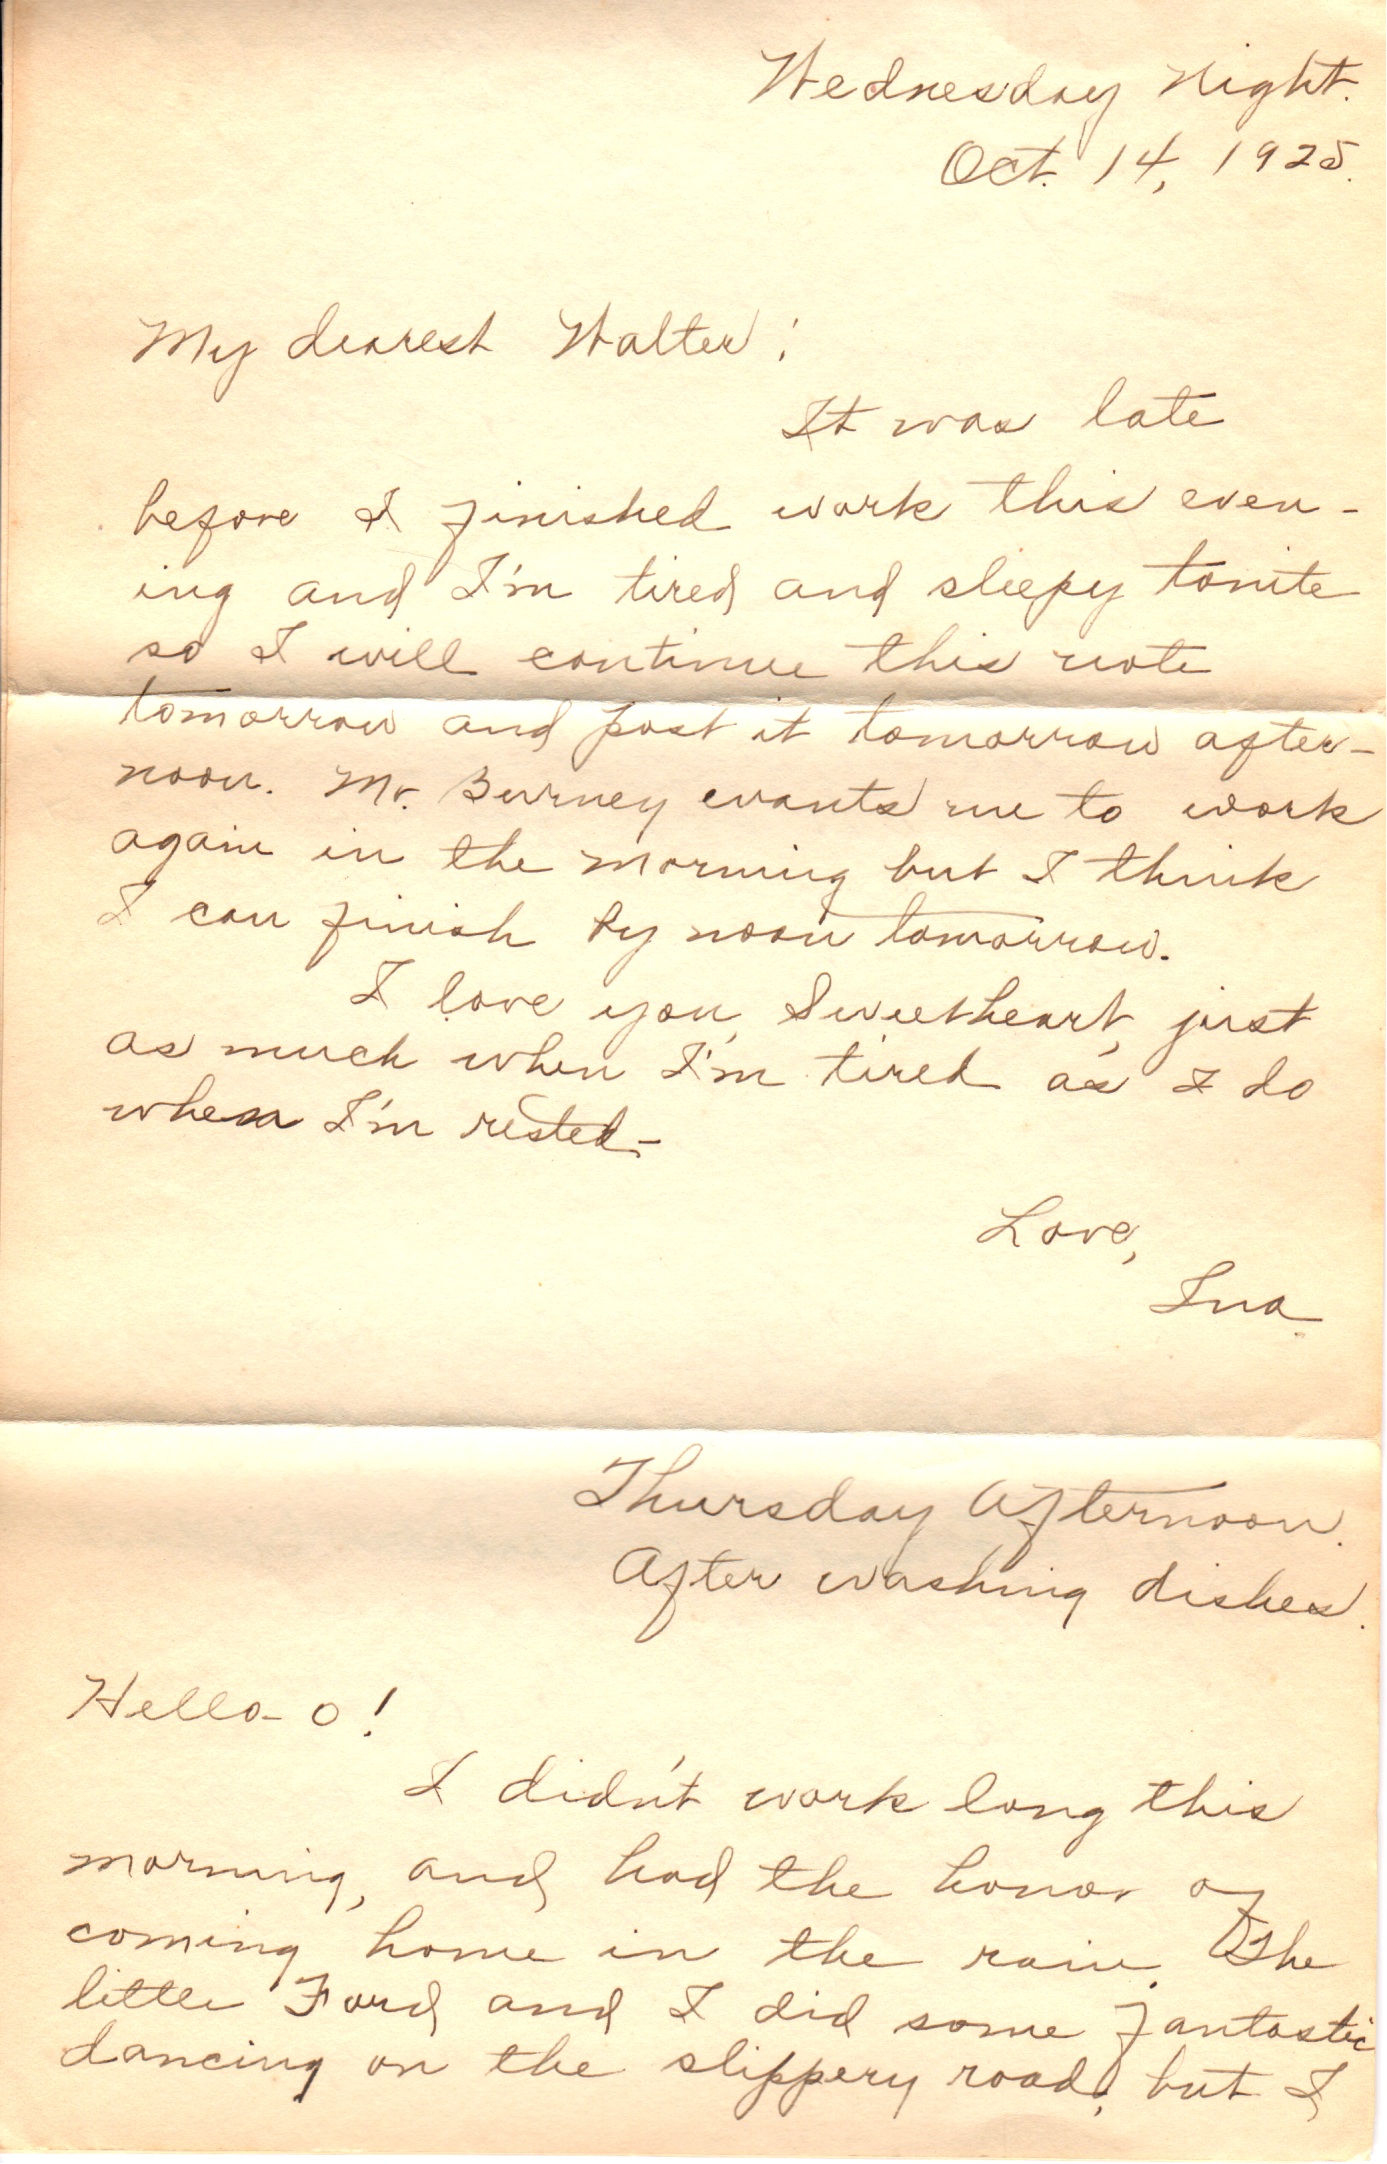 Wednesday Night.
Oct. 14, 1925.
My dearest Walter:
It was late
before I finished work this even-
ing and I'm tired and sleepy tonite
so I will continue this note
tomorrow and post it tomorrow after-
noon. Mr. Burney wants me to work
again in the morning but I think
I can finish by noon tomorrow.
I love you, Sweetheart, just
as much when I'm tired as I do
when I'm rested-
Love,
Ina.
Thursday Afternoon.
After washing dishes.
Hello-o!
I didn't work long this
morning, and had the honor of
coming home in the rain. The
little Ford and I did some fantastic
dancing on the slippery road, but I